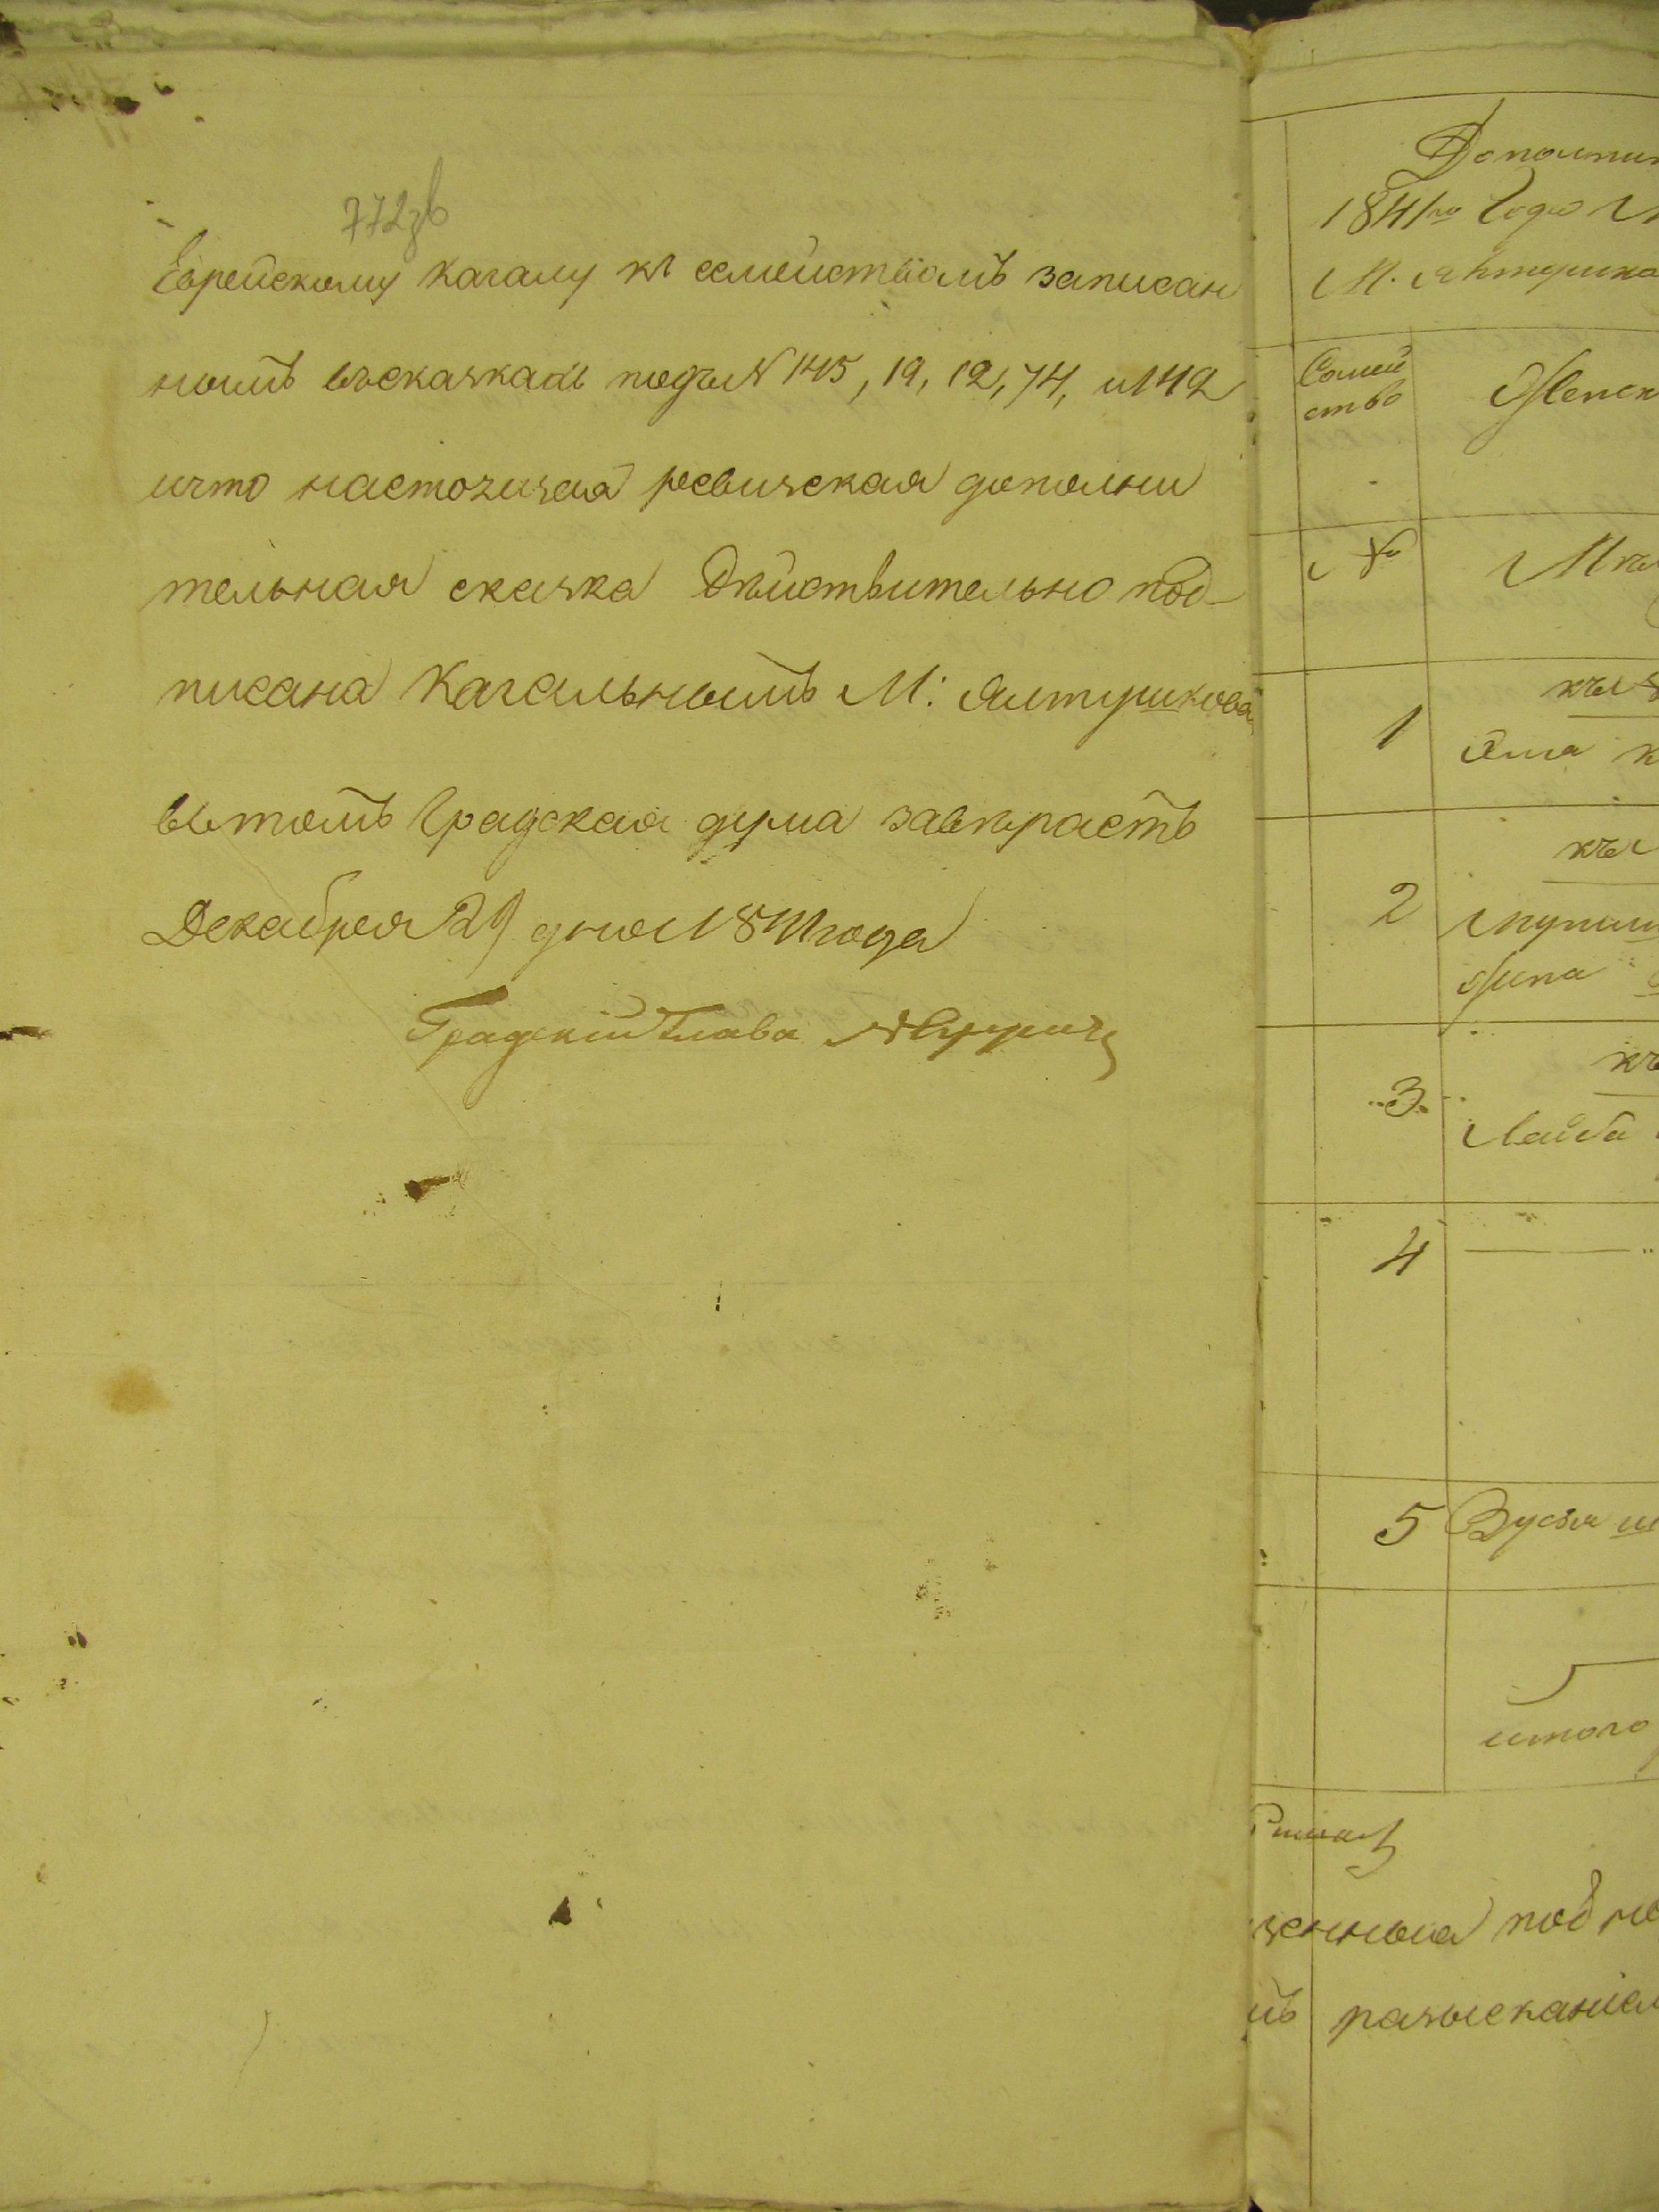 772зв
Еврейскому Кагалу къ семействамъ записан
нымъ въсказкахъ подъ № 145, 19, 12, 74, и 142
ичто настоящая ревизская дополни
тельная сказка Действительно под-
писана Кагальнымъ М: Ялтушкова
вътомъ Градская дума завѣраетъ
Декабря 29 дня 1841 года
Градскій Глава
Дополнит
1841го Года
М. Ялтушко
Семей
ство
Женск
№
1
къ №
2
къ
3
къ
Лейба
4
5 Зусья
итого
женныя под
мъ разысканіем